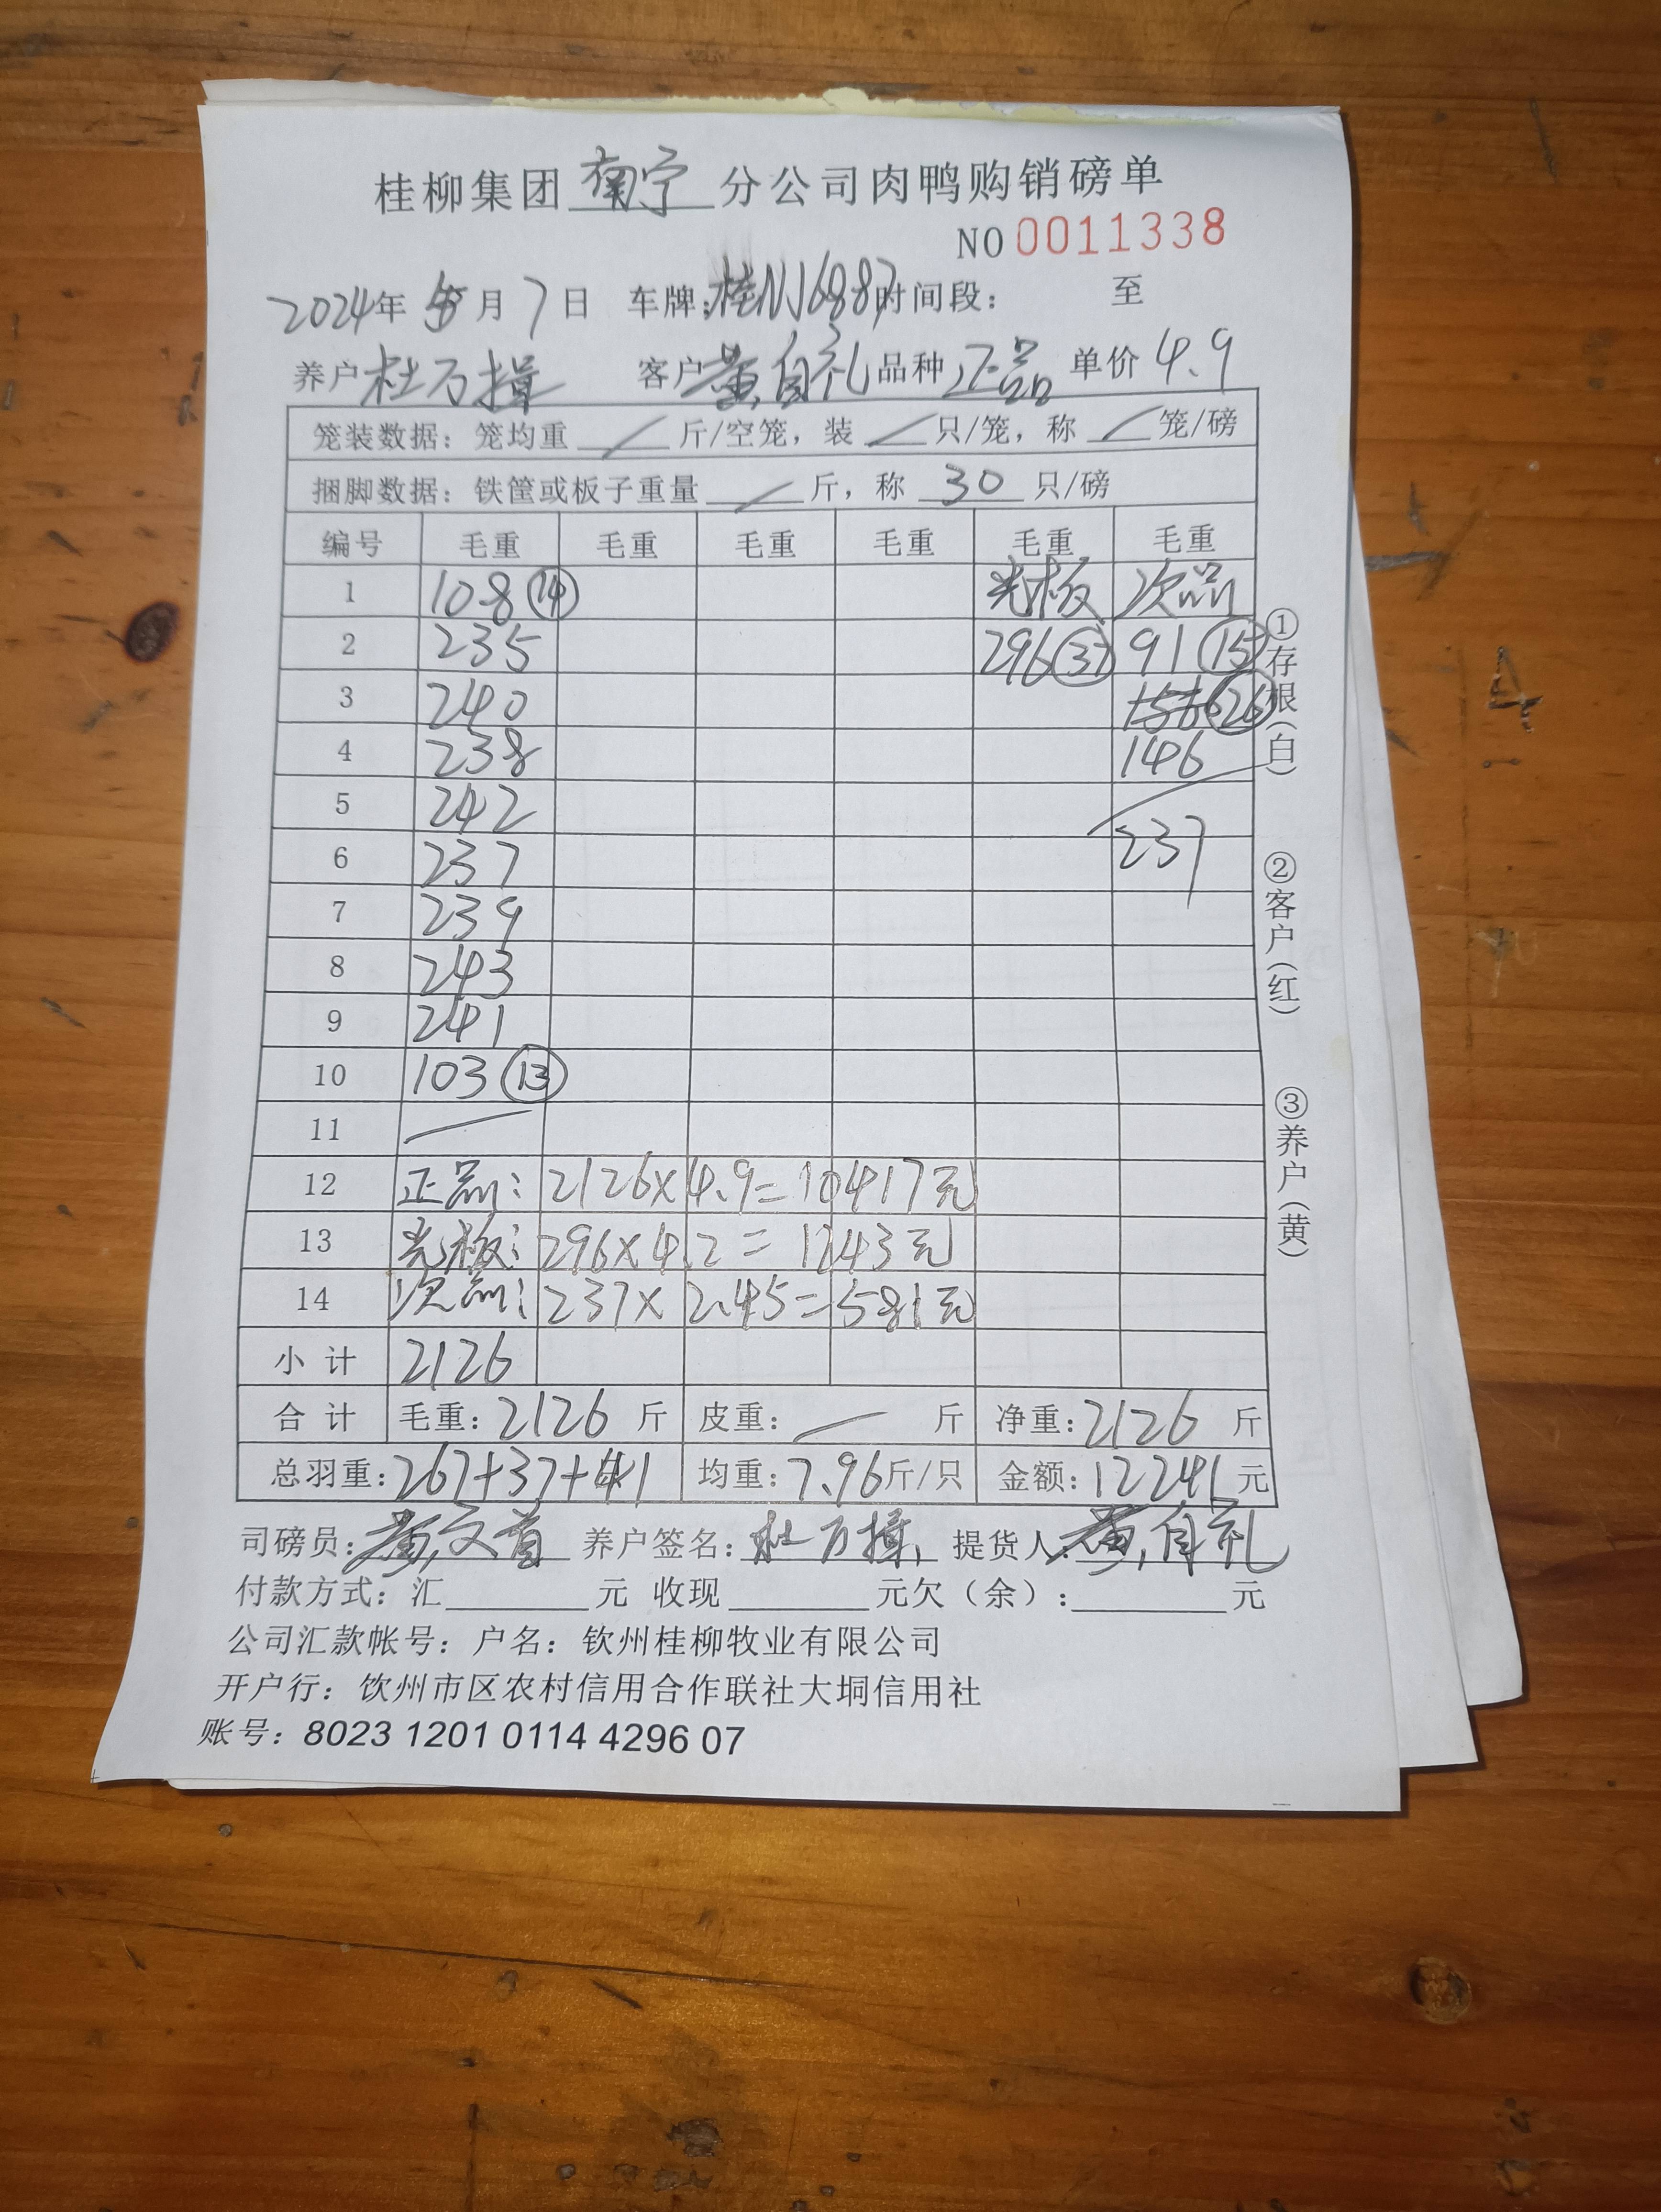 桂柳集团 南宁 分公司肉鸭购销磅单
NO 0011338
2024年 5月 7日 车牌:桂NJ6887 时间段: 至
养户 杜万揖 客户 黄自礼 品种 正品 单价 4.9
笼装数据: 笼均重 / 斤/空笼, 装 / 只/笼, 称 / 笼/磅
捆脚数据: 铁筐或板子重量 / 斤, 称 30 只/磅
编号 毛重 毛重 毛重 毛重 毛重 毛重
1 108 ⑭ 光板 次品
2 235 296 ㊲ 91 ⑮
3 240 156 ㉖
4 238 146
5 242
6 237 237
7 239
8 243
9 241
10 103 ⑬
11 /
12 正品: 2126×4.9=10417元
13 光板: 296×4.2=1243元
14 次品: 237×2.45=581元
小 计 2126
合 计 毛重: 2126 斤 皮重: / 斤 净重: 2126 斤
总羽重: 267+37+41 均重: 7.96斤/只 金额: 12241元
司磅员: 黄文首 养户签名: 杜万揖 提货人: 黄自礼
付款方式: 汇 元 收现 元欠(余): 元
公司汇款帐号: 户名: 钦州桂柳牧业有限公司
开户行: 饮州市区农村信用合作联社大垌信用社
账号: 8023 1201 0114 4296 07
①存根(白)
②客户(红)
③养户(黄)